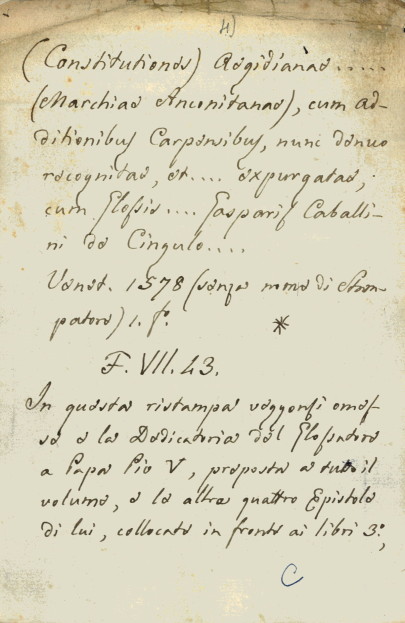 4)
(Constitutiones) Aegidianae .....
(Marchiae Anconitanae), cum ad-
ditionibus Carpensibus, nunc denuo
recognitae, et .... expurgatae,
cum Glossis .... Gasparis Caballi-
ni de Cingulo....
Venet. 1578 (senza nome di Stam-
patore) 1. fo.
*
F. VII. 43.
In questa ristampa veggonsi omes-
se e la Dedicatoria del Glossatore
a Papa Pio V, preposta a tutto il
volume, e le altre quattro Epistole
di lui, collocate in fronte ai libri 3o,
C